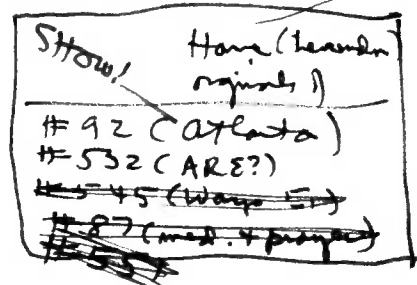 Show! Have (
originals)
#92 (Atlanta)
#532 (ARE?)
#545 (Ways
#87 (med. + prayer)
#557